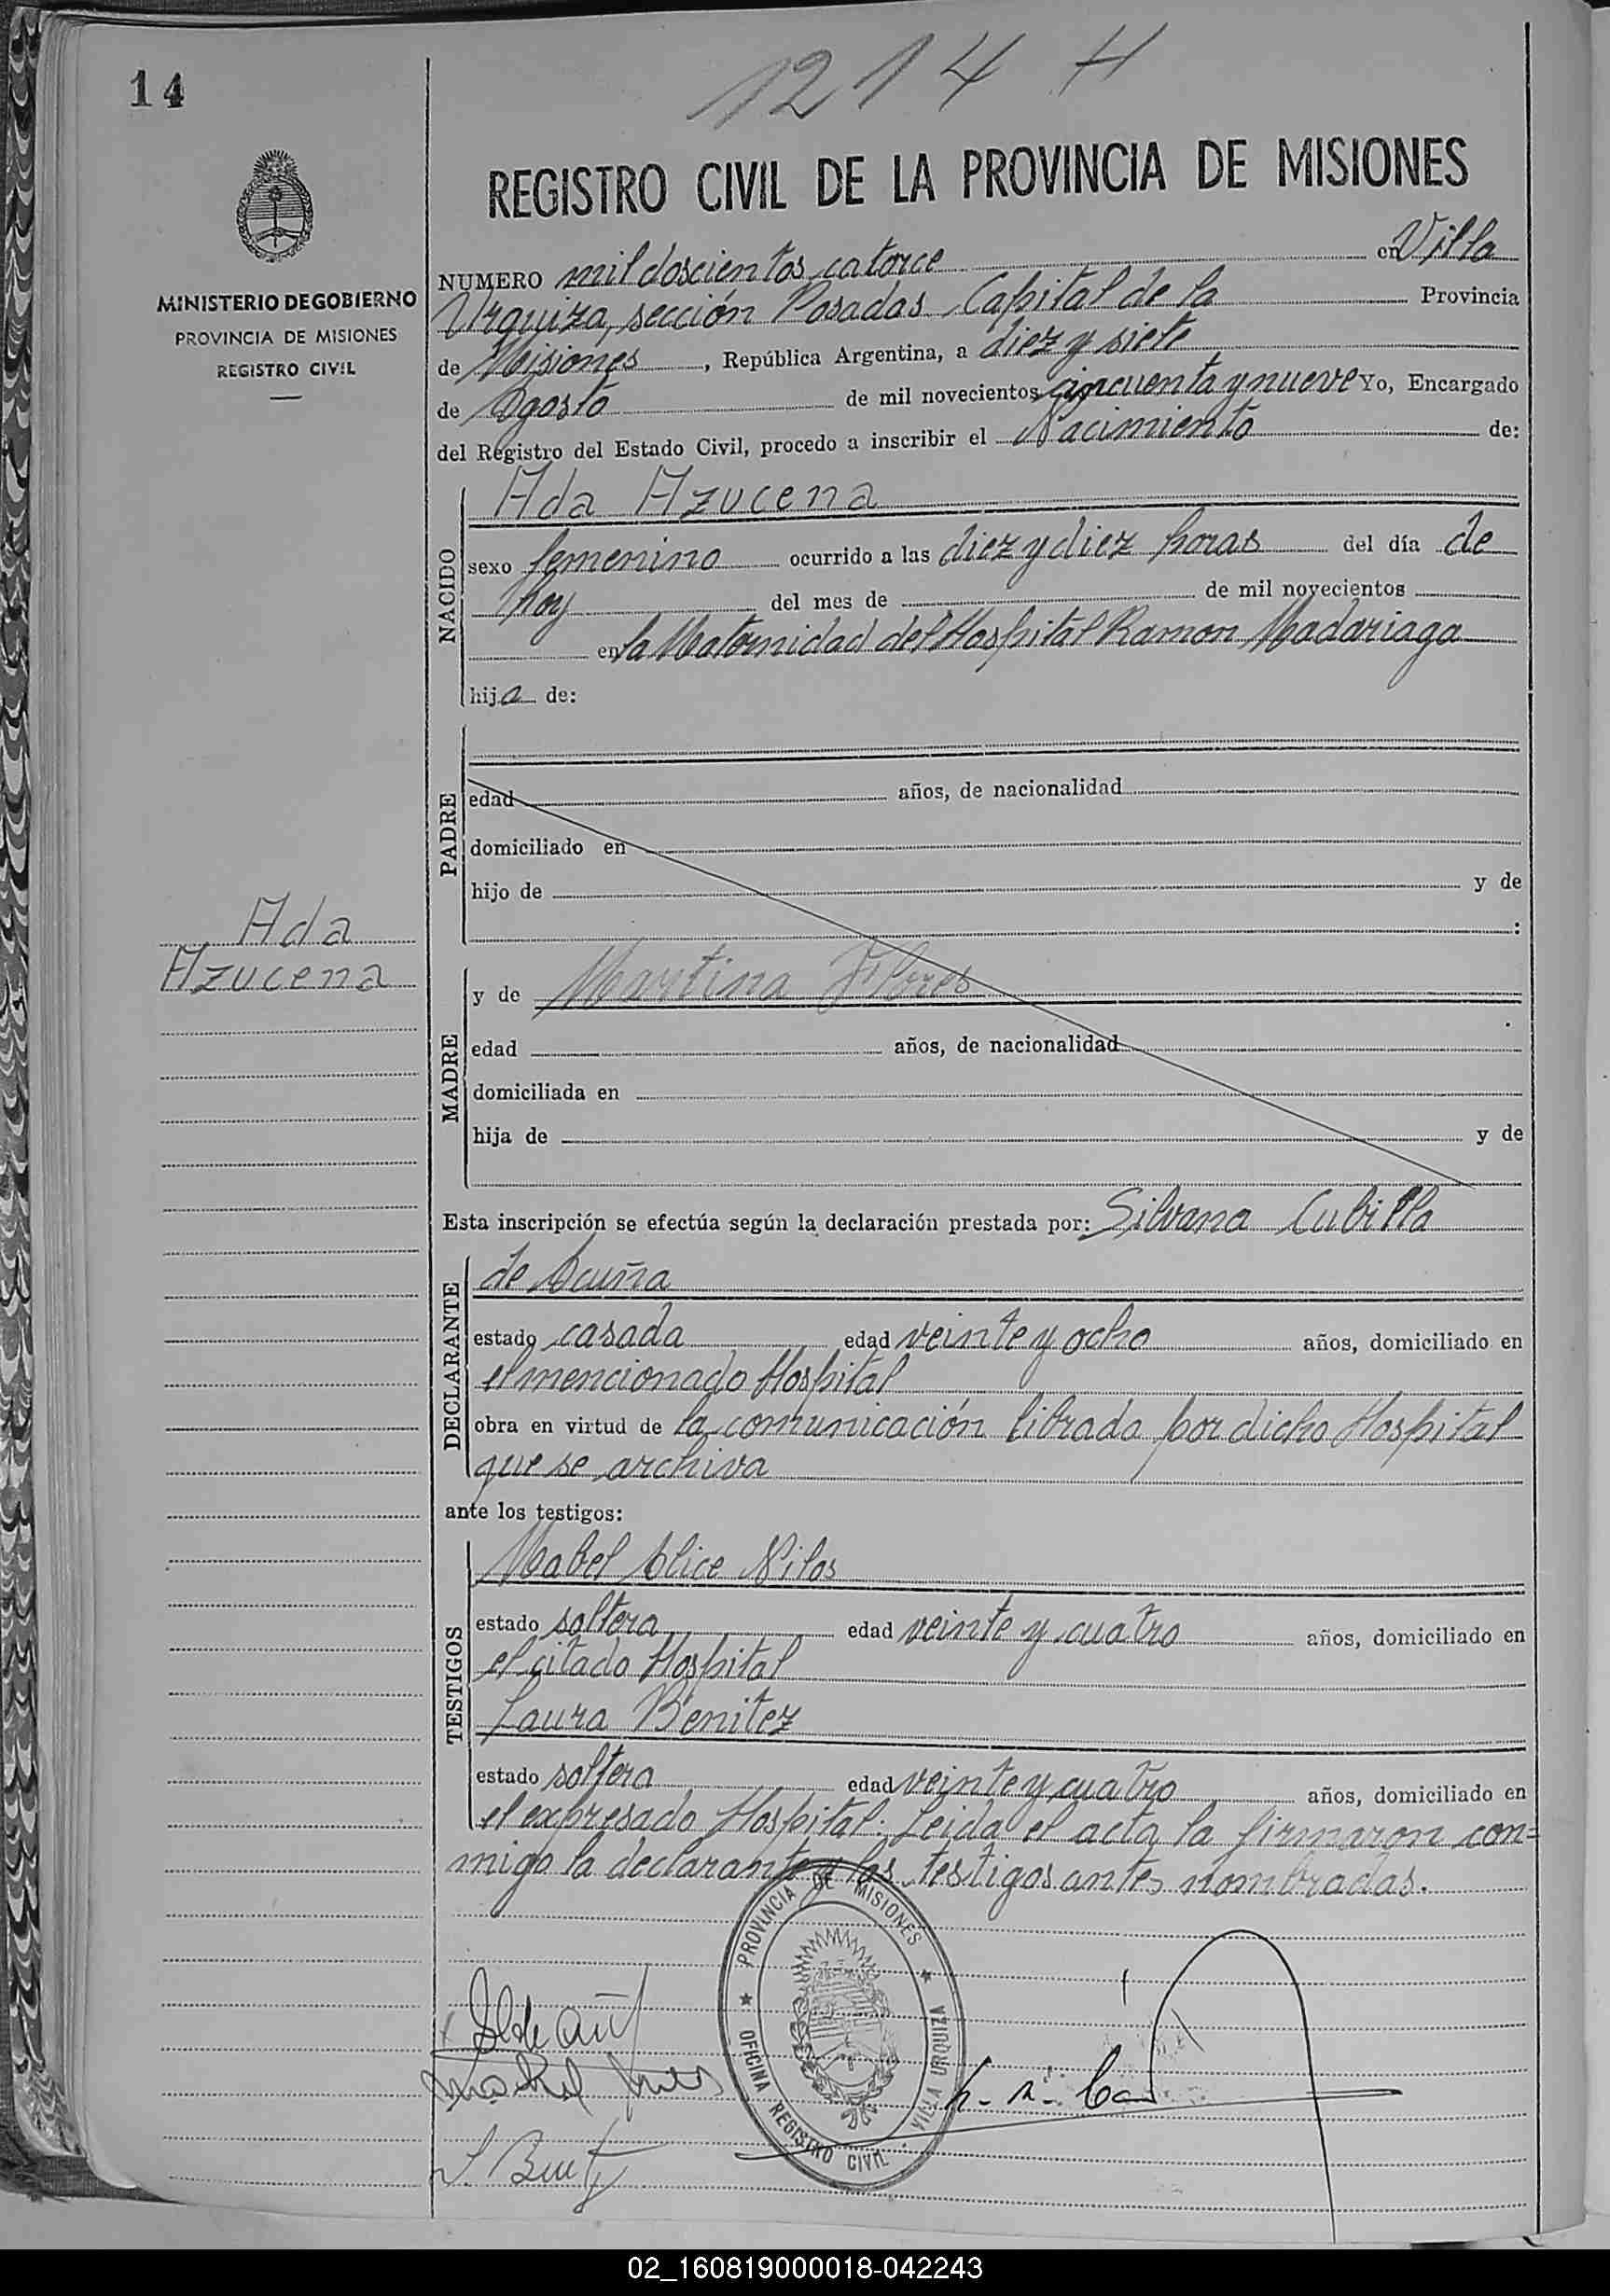 14
1214 H
REGISTRO CIVIL DE LA PROVINCIA DE MISIONES
MINISTERIO DE GOBIERNO
PROVINCIA DE MISIONES
REGISTRO CIVIL
NUMERO mil doscientos catorce en Villa
Urquiza, sección Posadas Capital de la Provincia
de Misiones, República Argentina, a diez y siete
de Agosto de mil novecientos cincuenta y nueve Yo, Encargado
del Registro del Estado Civil, procedo a inscribir el Nacimiento de:
NACIDO
Ada Azucena
sexo femenino ocurrido a las diez y diez horas del día de
hoy del mes de de mil novecientos
en la Maternidad del Hospital Ramon Madariaga
hija de:
PADRE
edad años, de nacionalidad
domiciliado en
hijo de y de
:
Ada
Azucena
MADRE
y de Martina Flores
edad años, de nacionalidad
domiciliada en
hija de y de
Esta inscripción se efectúa según la declaración prestada por: Silvana Cubilla
DECLARANTE
de Acuña
estado casada edad veinte y ocho años, domiciliado en
el mencionado Hospital
obra en virtud de la comunicación librada por dicho Hospital
que se archiva
ante los testigos:
TESTIGOS
Mabel Alice
estado soltera edad veinte y cuatro años, domiciliado en
el citado Hospital
Laura Benitez
estado soltera edad veinte y cuatro años, domiciliado en
el expresado Hospital. Leida el acta la firmaron con=
migo la declarante y las testigos antes nombradas.
PROVINCIA DE MISIONES
OFICINA REGISTRO CIVIL
VILLA URQUIZA
02_160819000018-042243